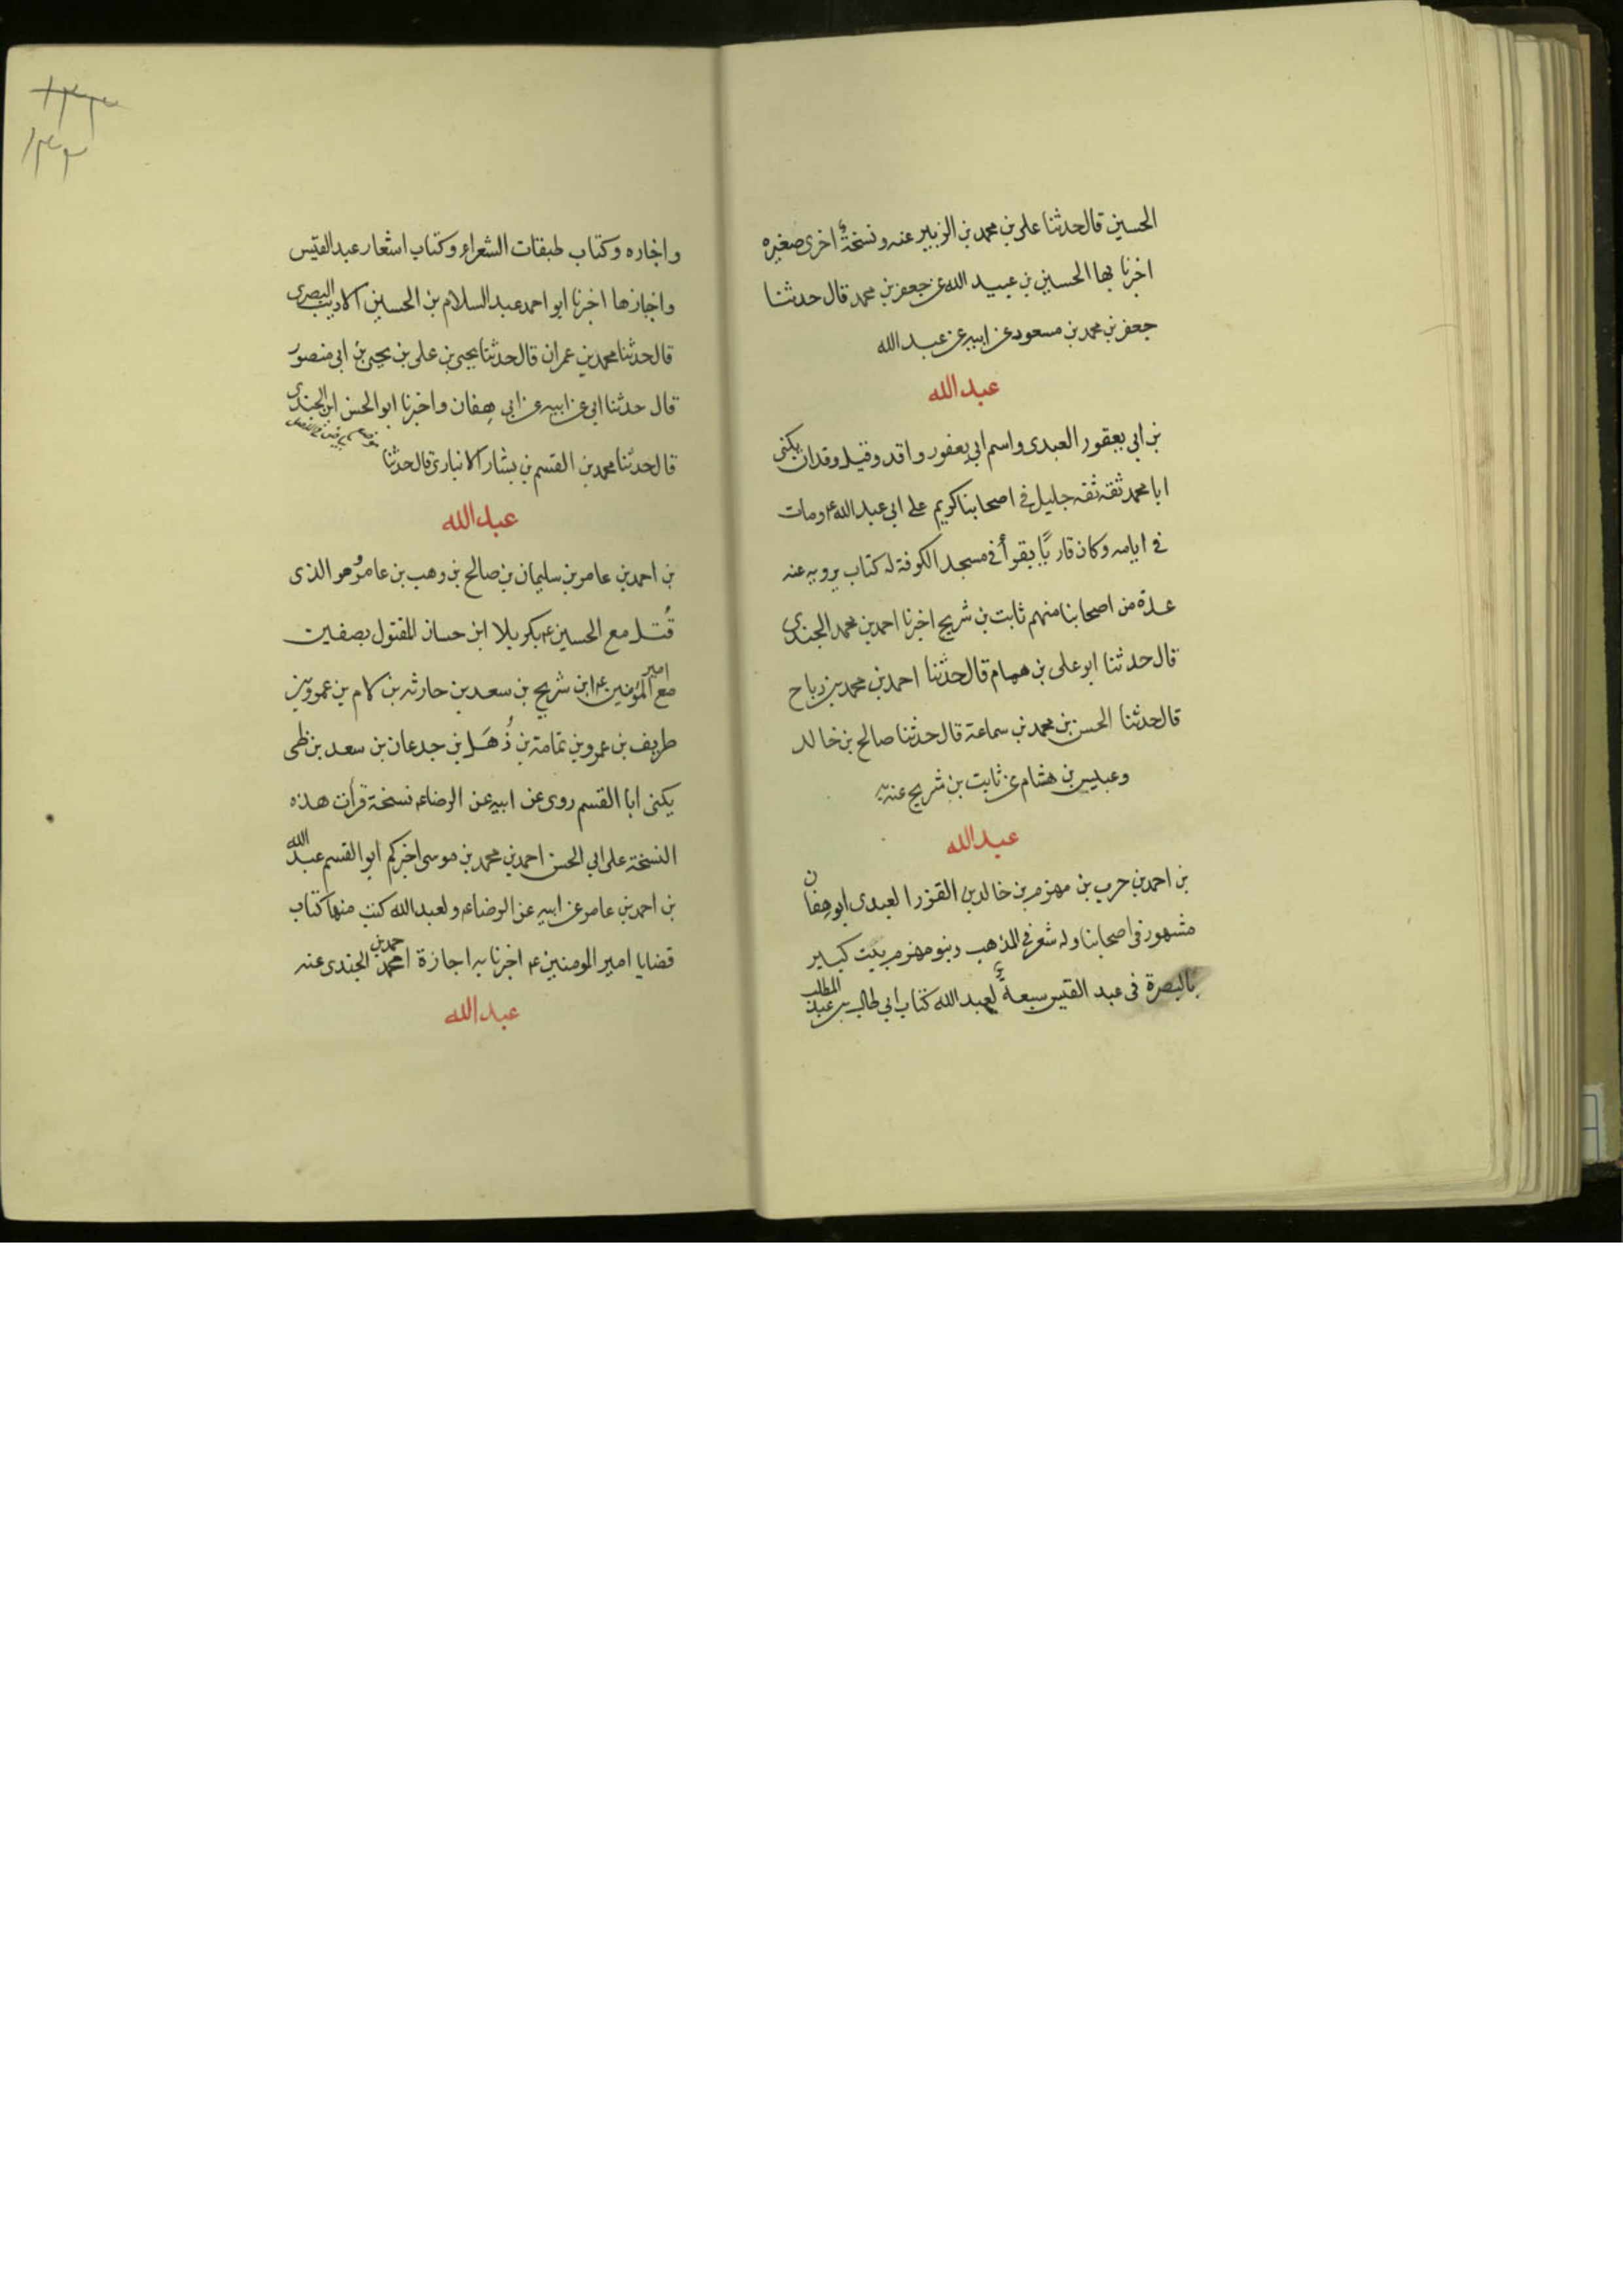 الحسين قال حدثنا على بن محمد بن الزبير عنه ونسخة اخرى صغيره
اخبرنا بها الحسين بن عبيد الله عن جعفر بن محمد قال حدثنا
جعفر بن محمد بن مسعود عن ابيه عن عبد الله
عبد الله
بن ابي يعفور العبدى واسم ابي يعفور واقد وقيل وقدان يكنى
ابا محمد ثقة ثقة جليل في اصحابنا كريم على ابي عبد الله ع ومات
في ايامه وكان قاريًا يقرأ في مسجد الكوفة له كتاب يرويه عنه
عدة من اصحابنا منهم ثابت بن شريح اخبرنا احمد بن محمد الجندى
قال حدثنا ابو على بن همام قال حدثنا احمد بن محمد بن رباح
قال حدثنا الحسن بن محمد بن سماعة قال حدثنا صالح بن خالد
وعبيس بن هشام عن ثابت بن شريح عنه به
عبد الله
بن احمد بن حرب بن مهزم بن خالد بن الفزر العبدى ابو هفان
مشهور فى اصحابنا وله شعر في المذهب وبنو مهزم بيت كبير
بالبصرة فى عبد القيس سبعة لعبد الله كتاب ابي طالب بن عبد المطلب
١٣٣
١٣٣
واخباره وكتاب طبقات الشعراء وكتاب اشعار عبد القيس
واخبارها اخبرنا ابو احمد عبد السلام بن الحسين الاديب البصرى
قال حدثنا محمد بن عمران قال حدثنا يحيى بن على بن يحيى بن ابى منصور
قال حدثنا ابى عن ابيه عن ابى هفان واخبرنا ابو الحسن ابن الجندى
قال حدثنا محمد بن القسم بن بشار الانبارى قال حدثنا
عبد الله
بن احمد بن عامر بن سليمان بن صالح بن وهب بن عامر وهو الذى
قُتل مع الحسين ع بكربلا ابن حسان المقتول بصفين
مع امير المؤمنين ع ابن شريح بن سعد بن حارثه بن لام بن عمرو بن
طريف بن عمرو بن ثمامة بن ذُهَل بن جدعان بن سعد بن طى
يكنى ابا القسم روى عن ابيه عن الرضا ع نسخة قرأت هذه
النسخة على ابي الحسن احمد بن محمد بن موسى اخبركم ابو القسم عبد الله
بن احمد بن عامر عن ابيه عن الرضا ع ولعبد الله كتب منها كتاب
قضايا امير المومنين ع اخبرنا به اجازة احمد بن محمد الجندى عنه
عبد الله